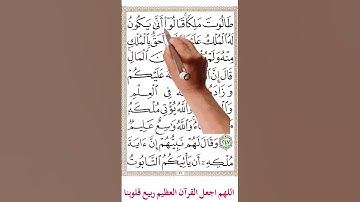 طَالُوتَ مَلِكًا قَالُوٓا۟ أَنَّىٰ يَكُونُ
لَهُ ٱلْمُلْكُ عَلَيْنَا أَحَقُّ بِٱلْمُلْكِ
مِنْهُ وَلَمْ ٱلْمَالِ
قَالَ إِنَّ عَلَيْكُمْ
وَزَادَهُۥ فِى ٱلْعِلْمِ
وَٱللَّهُ يُؤْتِى مُلْكَهُۥ
وَٱللَّهُ وَٰسِعٌ عَلِيمٌ
٢٤٧ وَقَالَ لَهُمْ نَبِيُّهُمْ إِنَّ ءَايَةَ
مُلْكِهِۦٓ أَن يَأْتِيَكُمُ ٱلتَّابُوتُ
اللهم اجعل القرآن العظيم ربيع قلوبنا